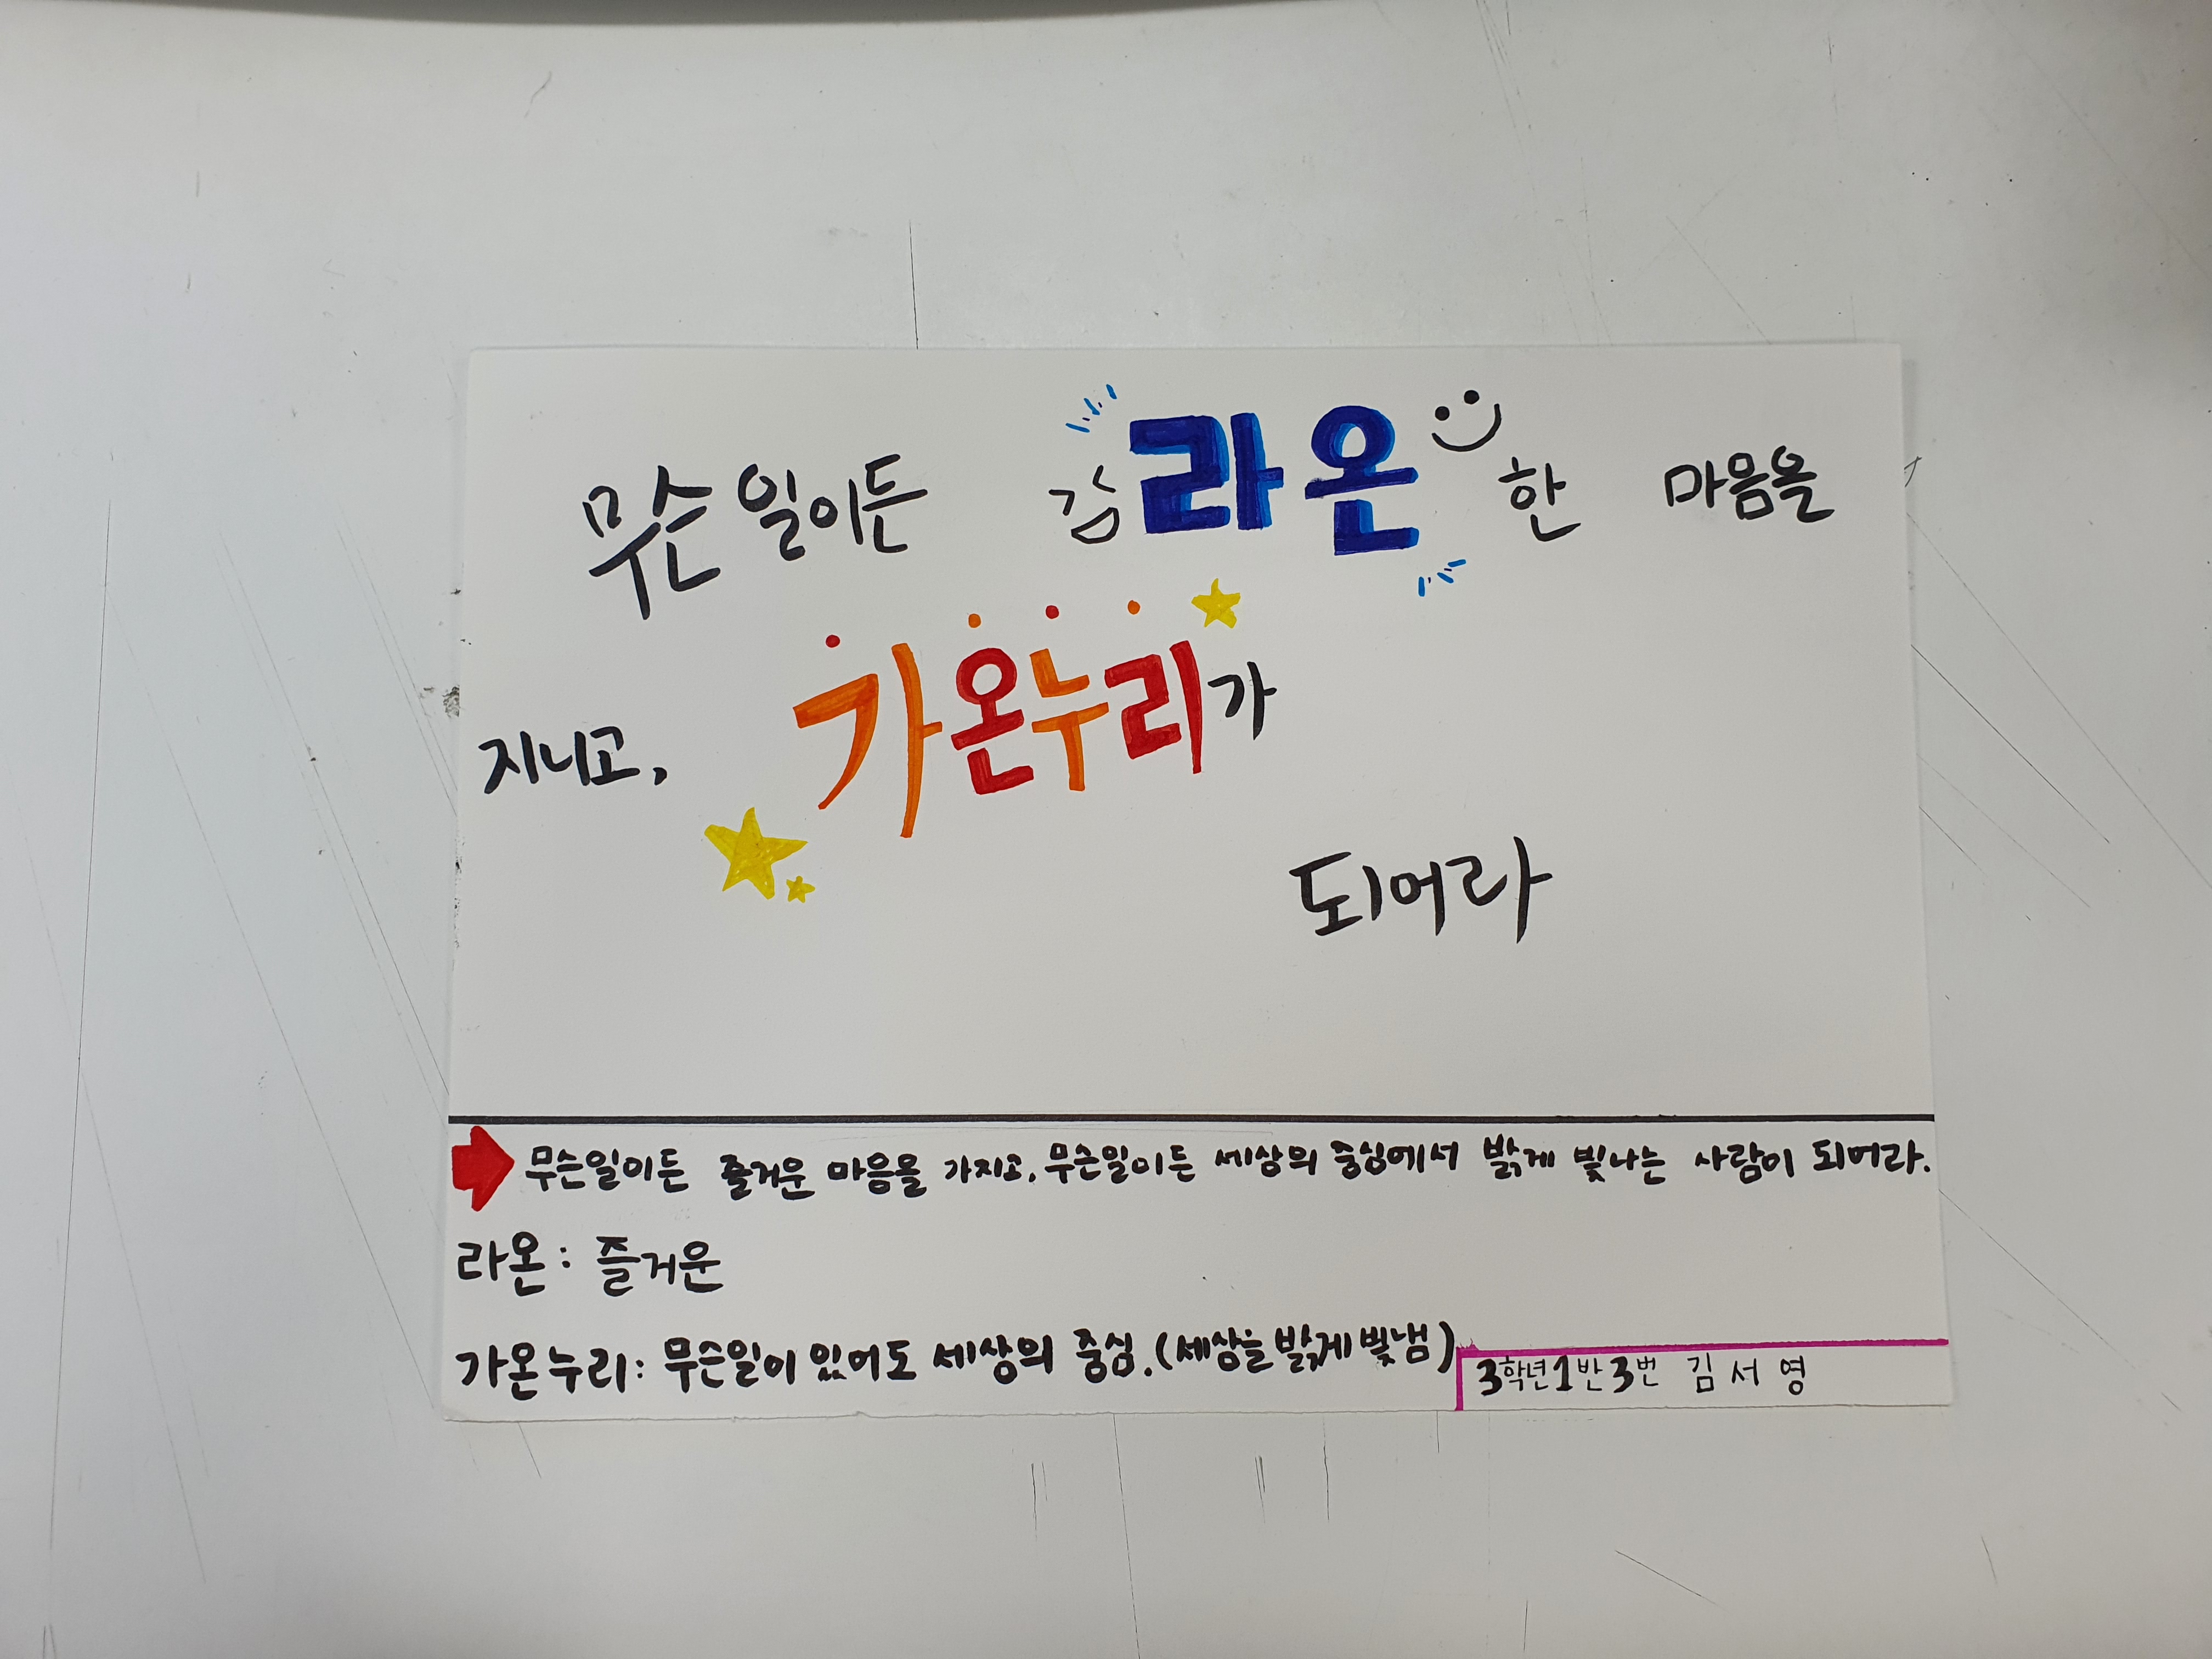 무슨일이든 라온한 마음을
지니고, 가온누리가
되어라
무슨일이든 즐거운 마음을 가지고, 무슨일이든 세상의 중심에서 밝게 빛나는 사람이 되어라.
라온: 즐거운
가온누리: 무슨일이 있어도 세상의 중심. (세상을 밝게 빛냄)
3학년1반3번 김서영